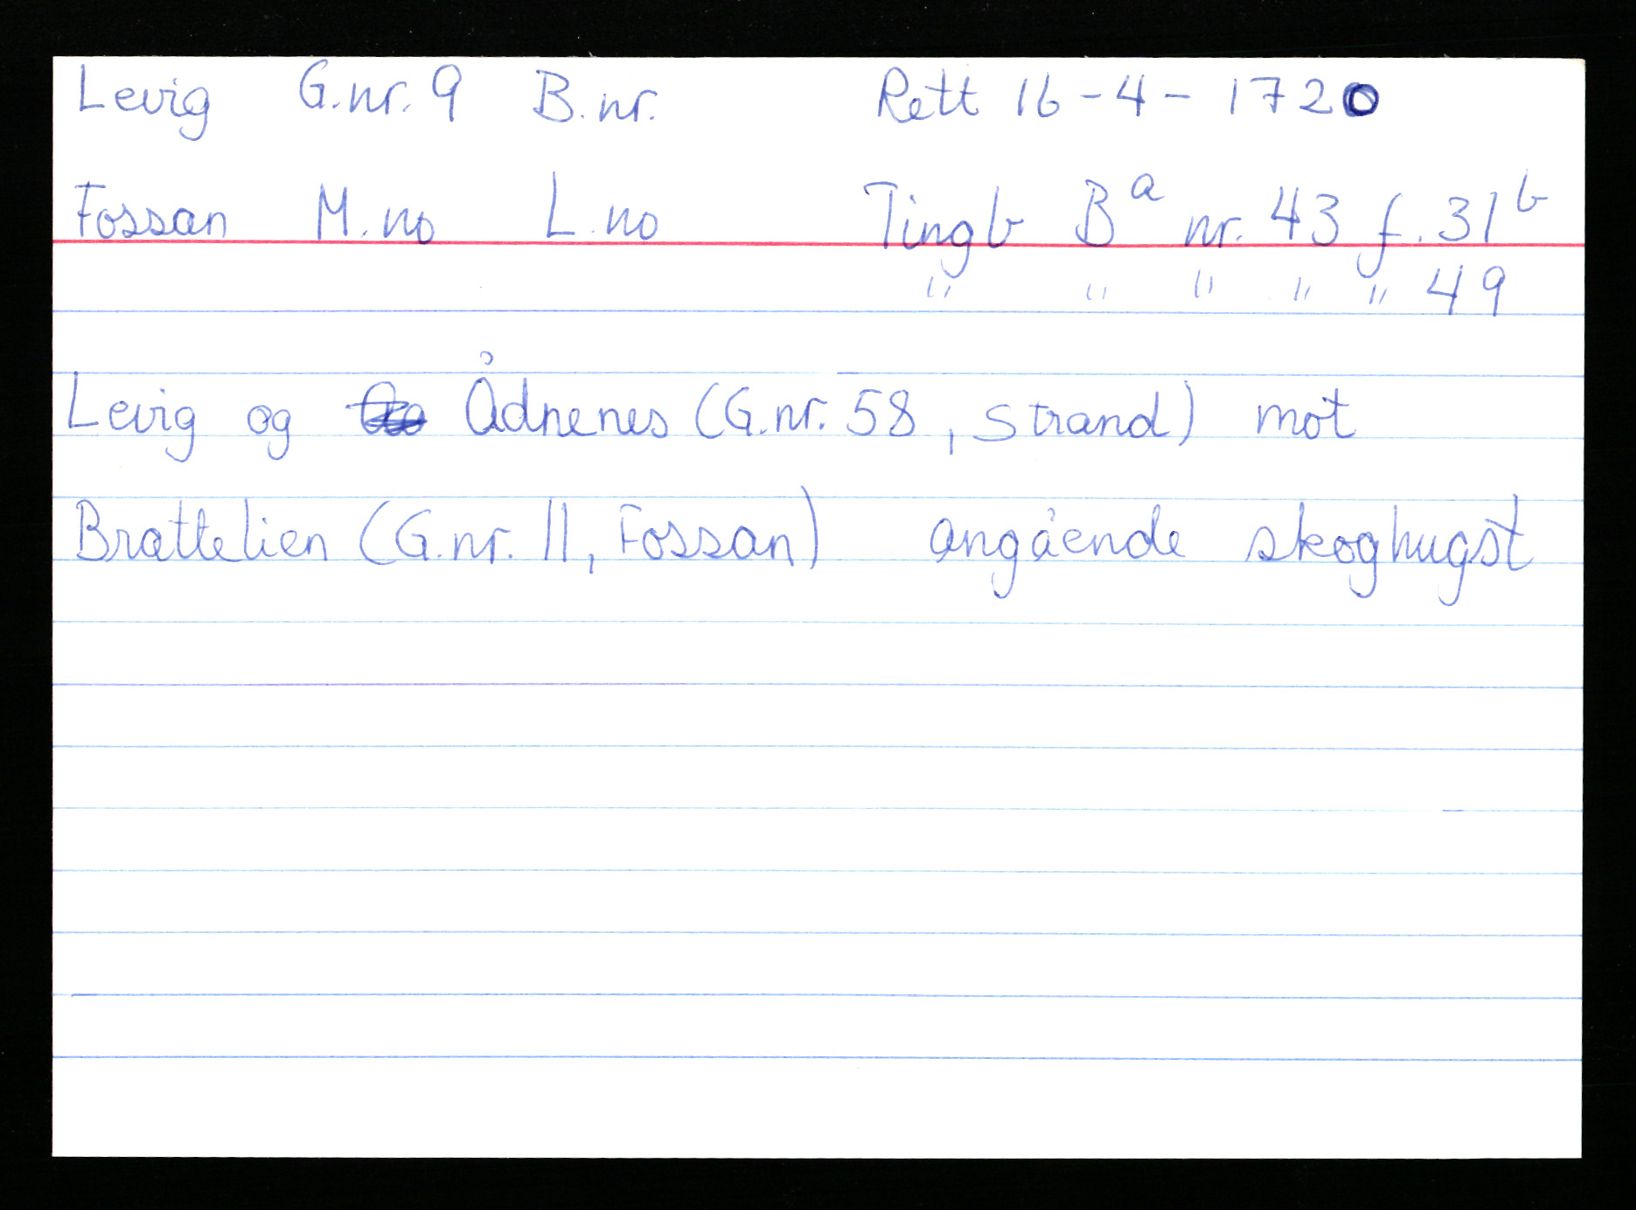 Levig G.nr. 9 B.nr. Rett 16-4-1720
Fossan M.no L.no Tingb Bª nr. 43 f. 31ᵇ
" " " " " 49
Levig og Ådnenes (G.nr. 58, Strand) mot
Brattelien (G.nr. 11, Fossan) angående skoghugst